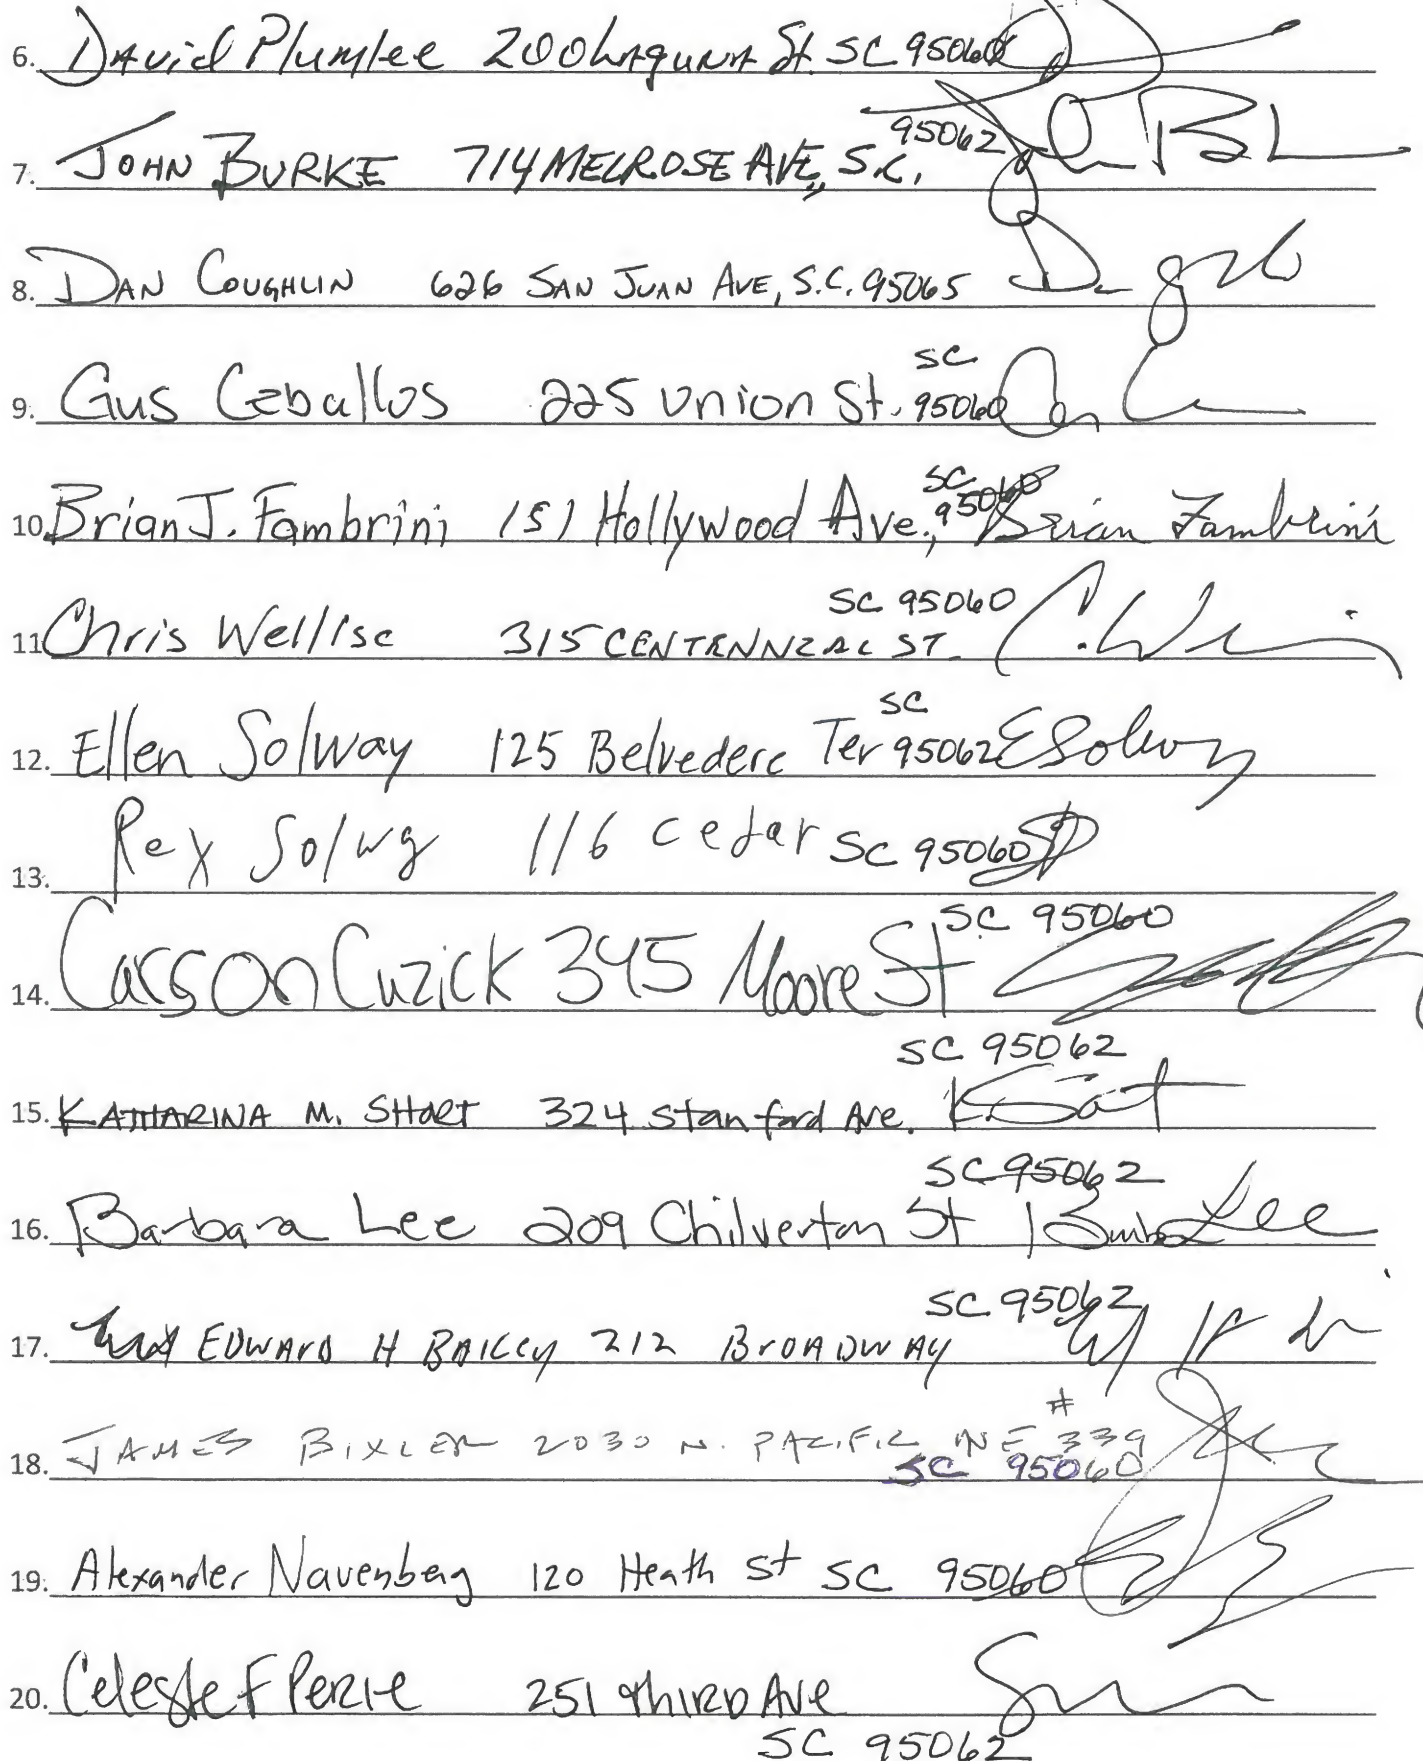 6. David Plumlee 200 Laguna St. SC 95060
7. JOHN BURKE 714 MELROSE AVE, S.C. 95062
8. DAN COUGHLIN 626 SAN JUAN AVE, S.C. 95065
9. Gus Ceballos 225 Union St. SC 95060
10. Brian J. Fambrini 151 Hollywood Ave., SC 95060 Brian Fambrini
11. Chris Wellise 315 CENTENNIAL ST. SC 95060
12. Ellen Solway 125 Belvedere Ter SC 95062 E Solway
13. Rex Solwy 116 cedar SC 95060
14. Carson Cuzick 345 Moore St SC 95060
15. KATHARINA M. SHORT 324 Stanford Ave. SC 95062
16. Barbara Lee 209 Chilverton St SC 95062 Barbara Lee
17. EDWARD H BAILEY 212 BROADWAY SC 95062
18. JAMES BIXLER 2030 N. PACIFIC AVE #339 SC 95060
19. Alexander Navenberg 120 Heath St SC 95060
20. Celeste F PERIE 251 THIRD Ave SC 95062